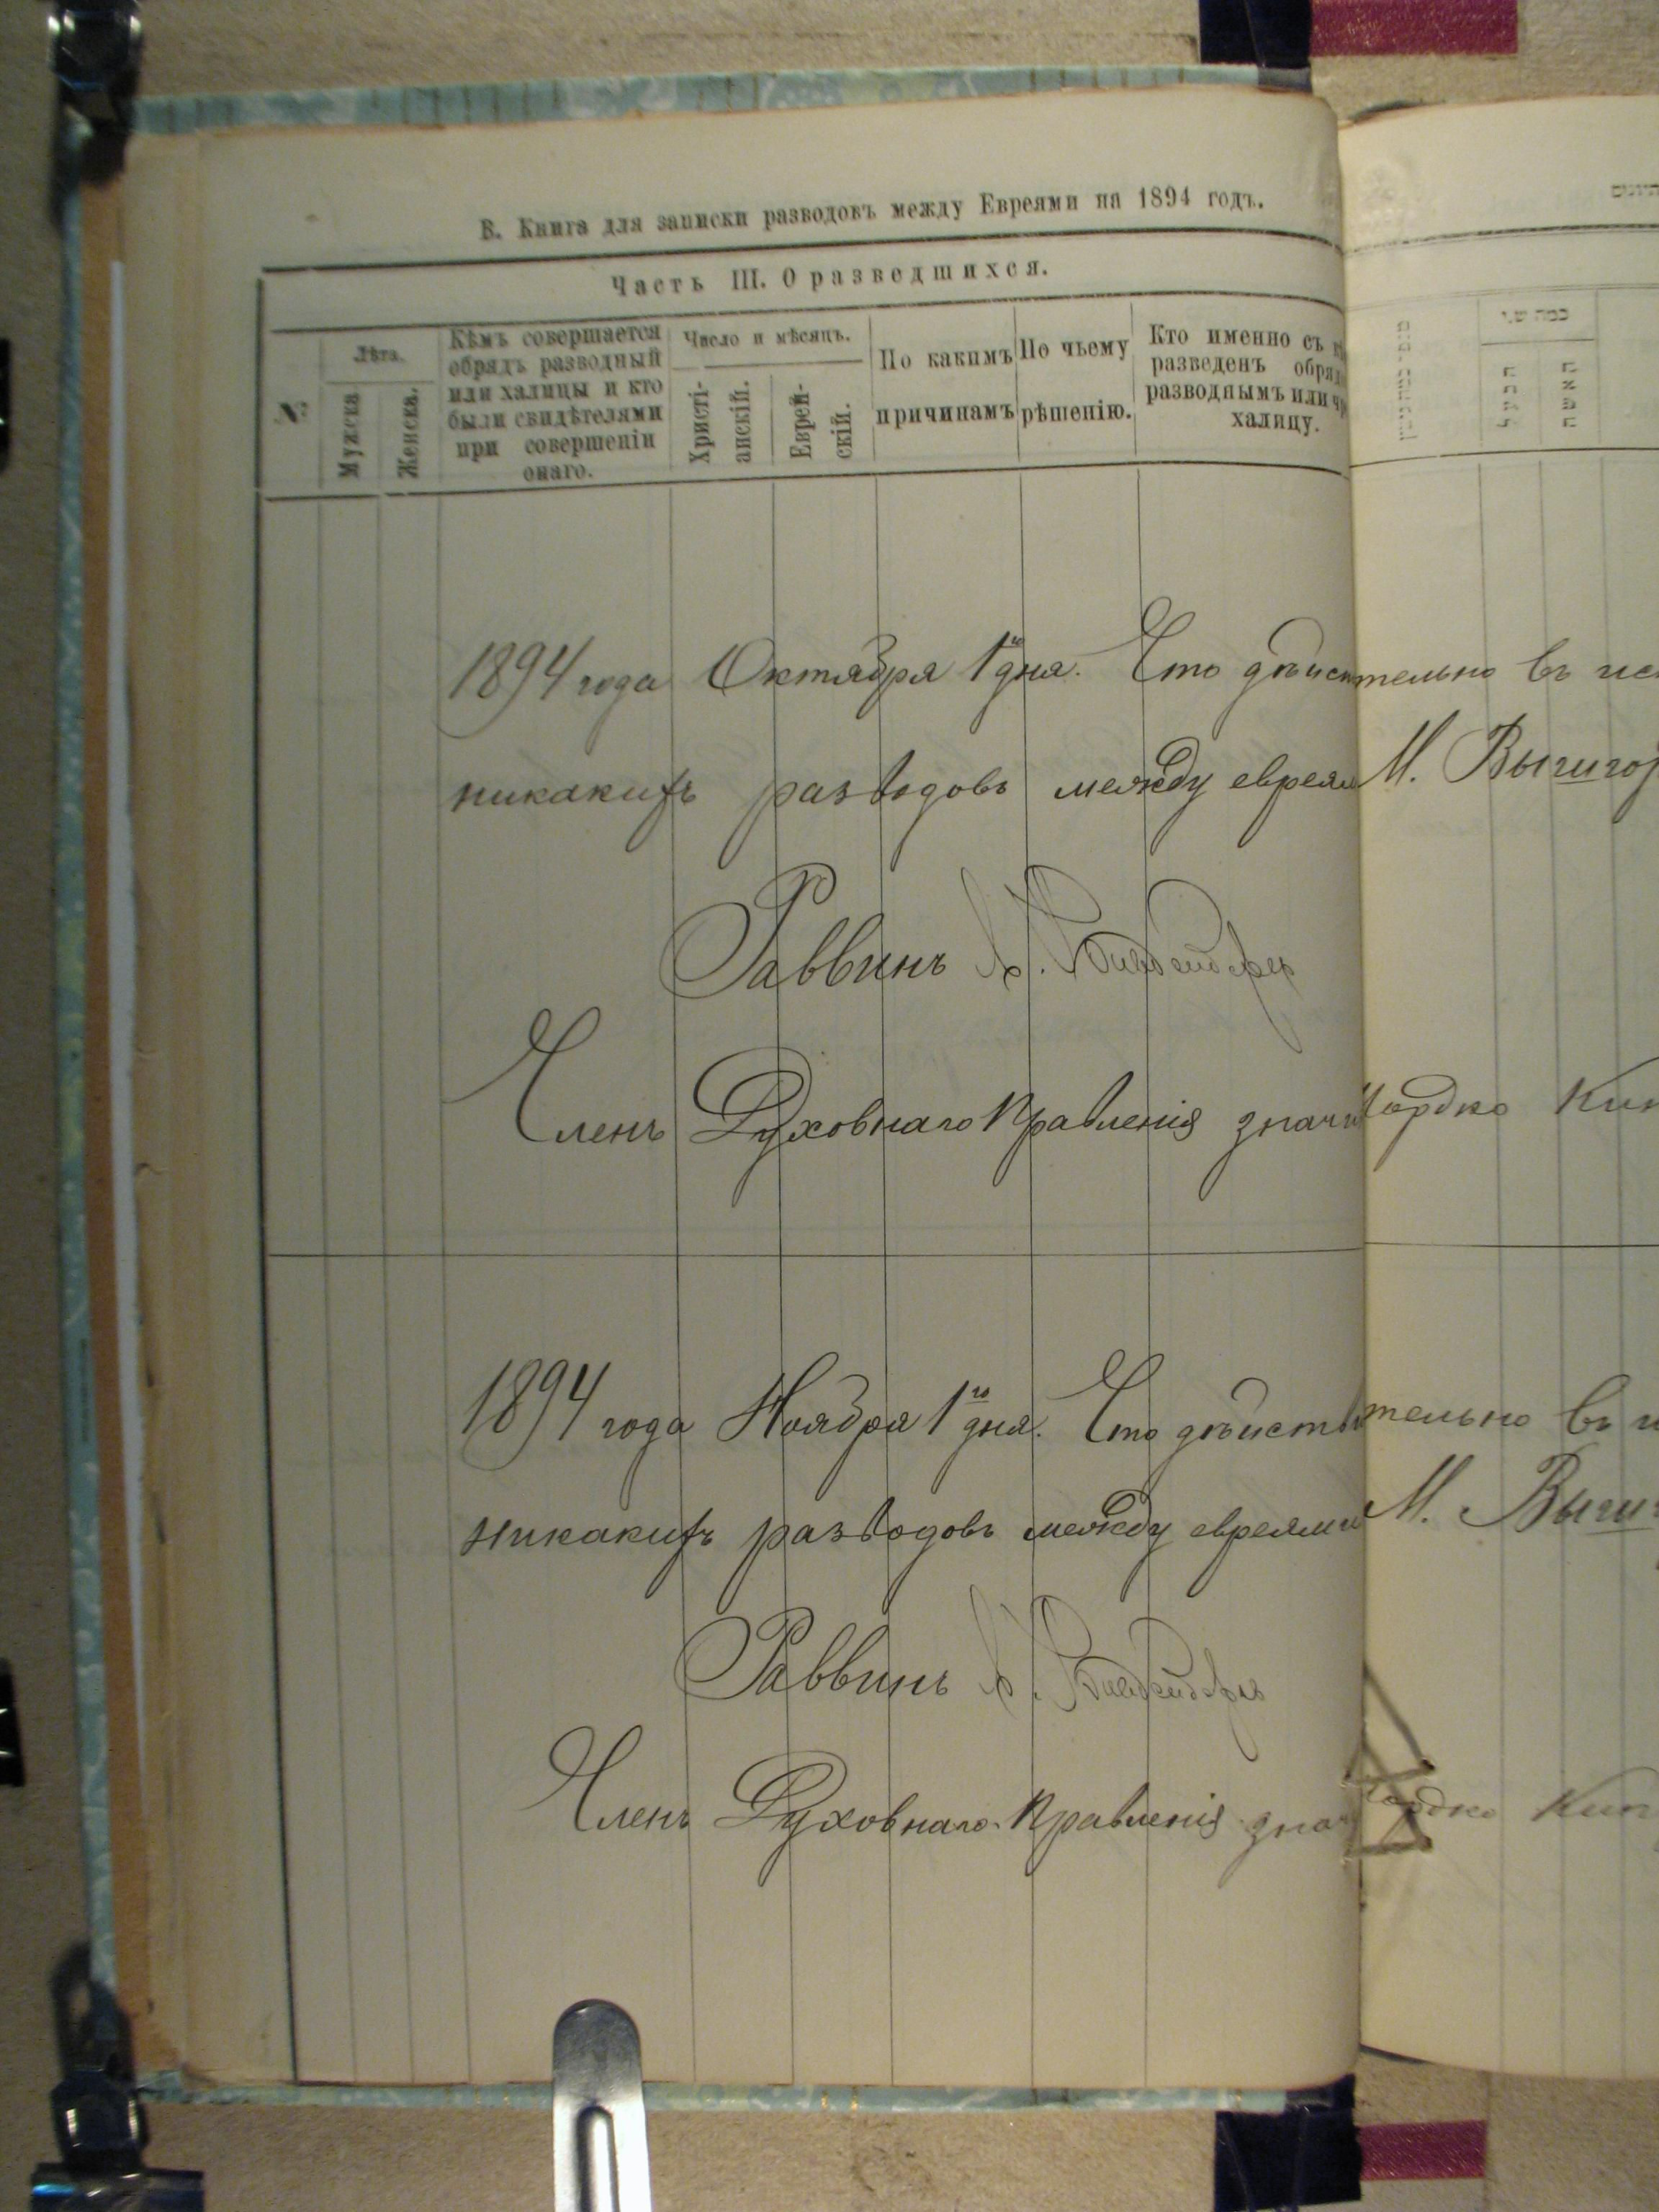 В. Книга для записки разводовъ между Евреями на 1894 годъ.
Часть III. О разведшихся.
№
Лѣта.
Мужска
Женска.
Кѣмъ совершается
обрядъ разводный
или халицы и кто
были свидѣтелями
при совершеніи
онаго.
Число и мѣсяцъ.
Христі-
анскій.
Еврей-
скій.
По какимъ
причинамъ
По чьему
рѣшенію.
Кто именно съ
разведенъ обряд
разводнымъ или
халицу.
כמה שני
הבעל
האשה
1894 года Октября 1го дня. Что дѣйствительно въ
никакихъ разводовъ между евреями М. Выгиго
Раввинъ
Членъ Духовнаго Правленія Мордко
1894 года Ноября 1го дня. Что дѣйствительно въ
никакихъ разводовъ между евреями М. Выги
Раввинъ
Членъ Духовнаго Правленія Мордко